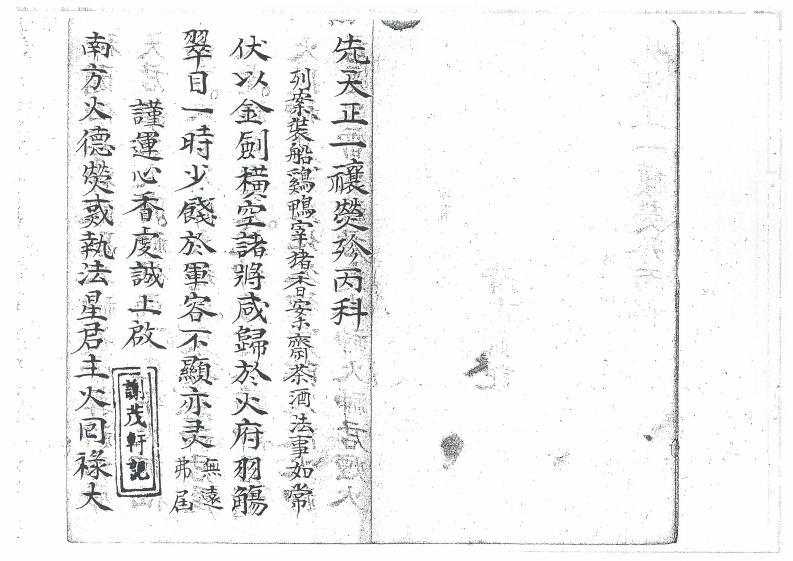 先天正一禳熒殄丙科
列案裝船鷄鴨宰猪香案齋茶酒法事如常
伏以金劍橫空諸將咸歸於火府羽觴
翠目一時少餞於軍容不顯亦灵無遠弗届
謹運心香虔誠上啟
南方火德熒惑執法星君主火囘祿大
謝茂軒記